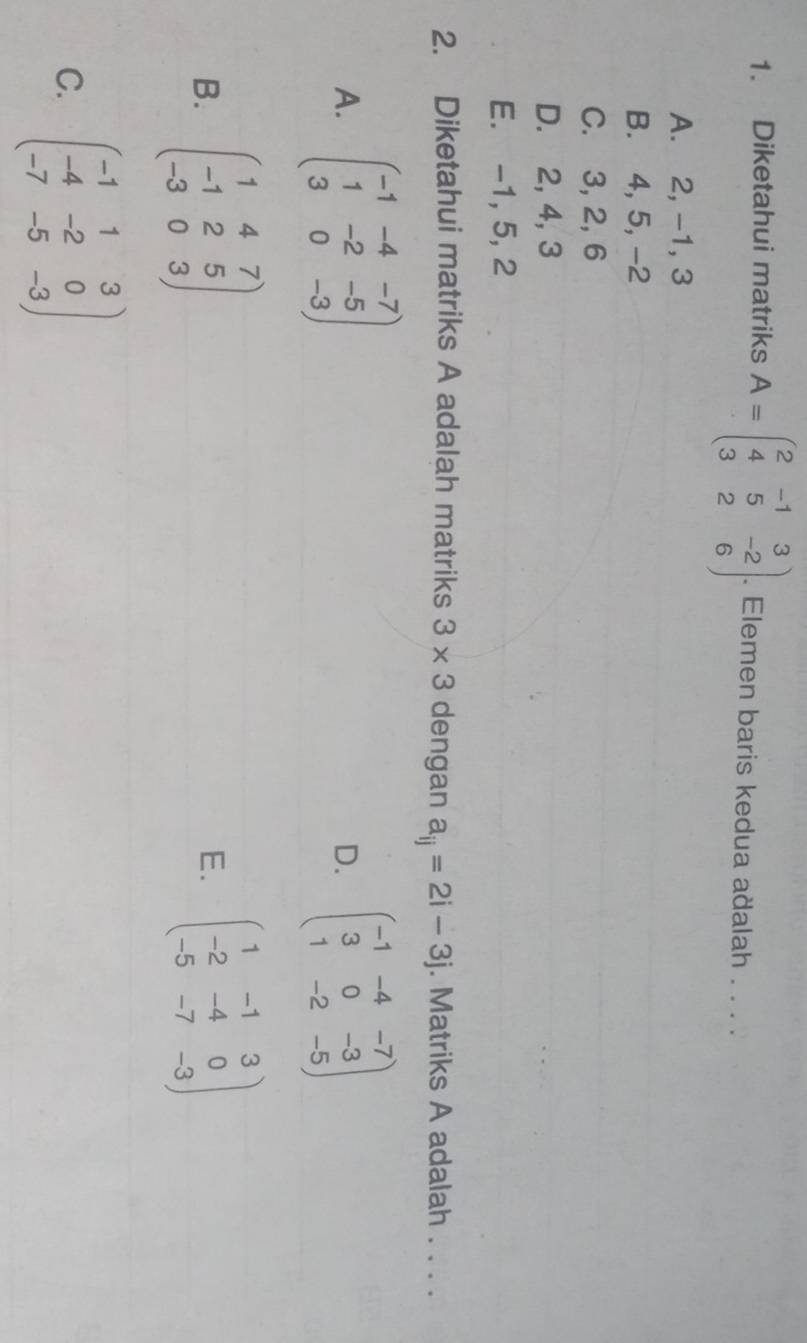 1. Diketahui matriks A = (2 -1 3
4 5 -2
3 2 6). Elemen baris kedua adalah . . . .
A. 2, -1, 3
B. 4, 5, -2
C. 3, 2, 6
D. 2, 4, 3
E. -1, 5, 2
2. Diketahui matriks A adalah matriks 3 × 3 dengan aij = 2i - 3j. Matriks A adalah . . . .
A. (-1 -4 -7
1 -2 -5
3 0 -3)
B. (1 4 7
-1 2 5
-3 0 3)
C. (-1 1 3
-4 -2 0
-7 -5 -3)
D. (-1 -4 -7
3 0 -3
1 -2 -5)
E. (1 -1 3
-2 -4 0
-5 -7 -3)